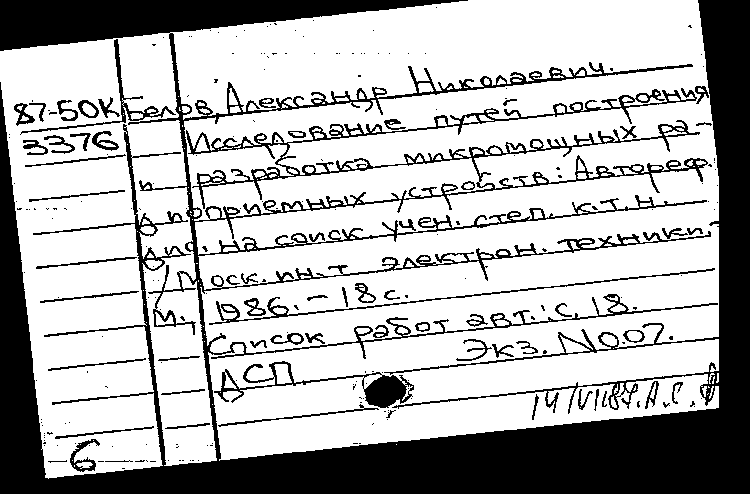 87-50К Белов, Александр Николаевич.
3376 Исследование путей построения
и разработка микромощных ра-
диоприемных устройств: Автореф.
дис. на соиск. учен. степ. к.т.н.
/ Моск. ин-т электрон. техники.-
М., 1986. - 18 с.
Список работ авт.: с. 18.
ДСП. Экз. N007.
6